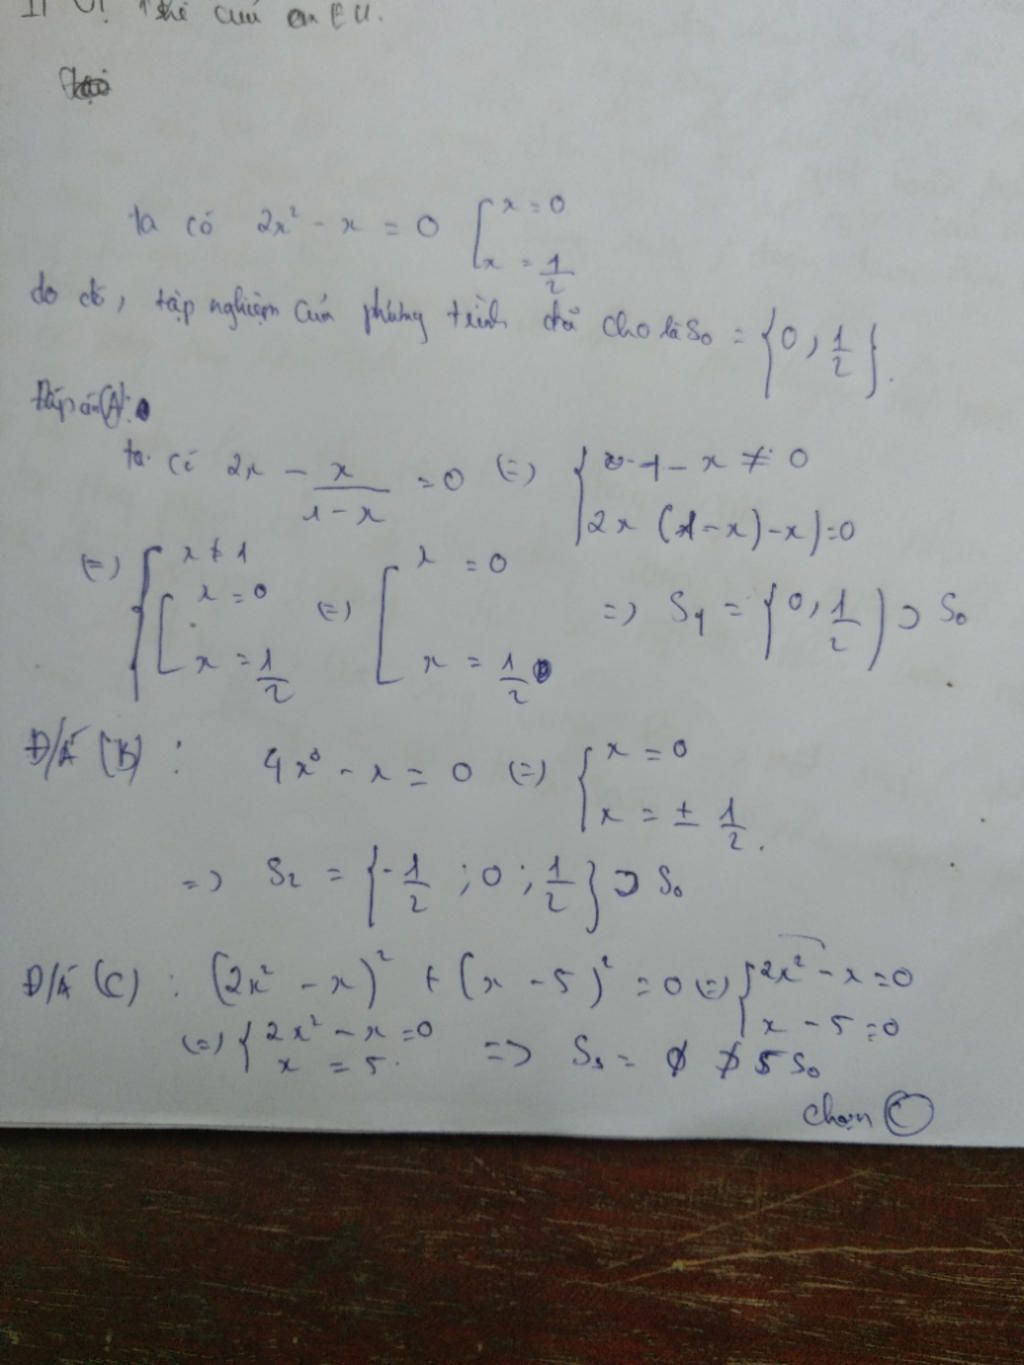 Thế của EU.
ta có 2x² - x = 0 [ x = 0
x = 1/2
do đó, tập nghiệm của phương trình đã cho là S₀ = {0, 1/2}.
Đáp án (A):
ta có 2x - x/(1-x) = 0 (=) { 1 - x ≠ 0
2x (1-x)-x)=0
(=) { x ≠ 1
[ x = 0
x = 1/2 (=) [ x = 0
x = 1/2 => S₁ = {0, 1/2) ⊃ S₀
Đ/Á (B) : 4x³ - x = 0 (=) { x = 0
x = ± 1/2.
=> S₂ = {-1/2 ; 0 ; 1/2} ⊃ S₀
Đ/Á (C) : (2x² - x)² + (x - 5)² = 0 (=) { 2x² - x = 0
x - 5 = 0
(=) { 2x² - x = 0
x = 5. => S₃ = ∅ ⊅ S₀
Chọn C